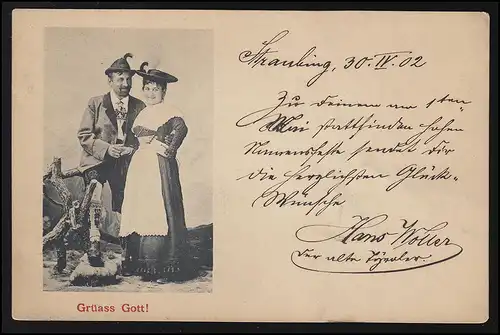 Straubing, 30. IV. 02
Zu deinem am 1ten
Mai stattfinden hohen
Namensfeste sendet dir
die herzlichsten Glück-
Wünsche
Hans Woller
der alte Tyroler.
Grüass Gott!